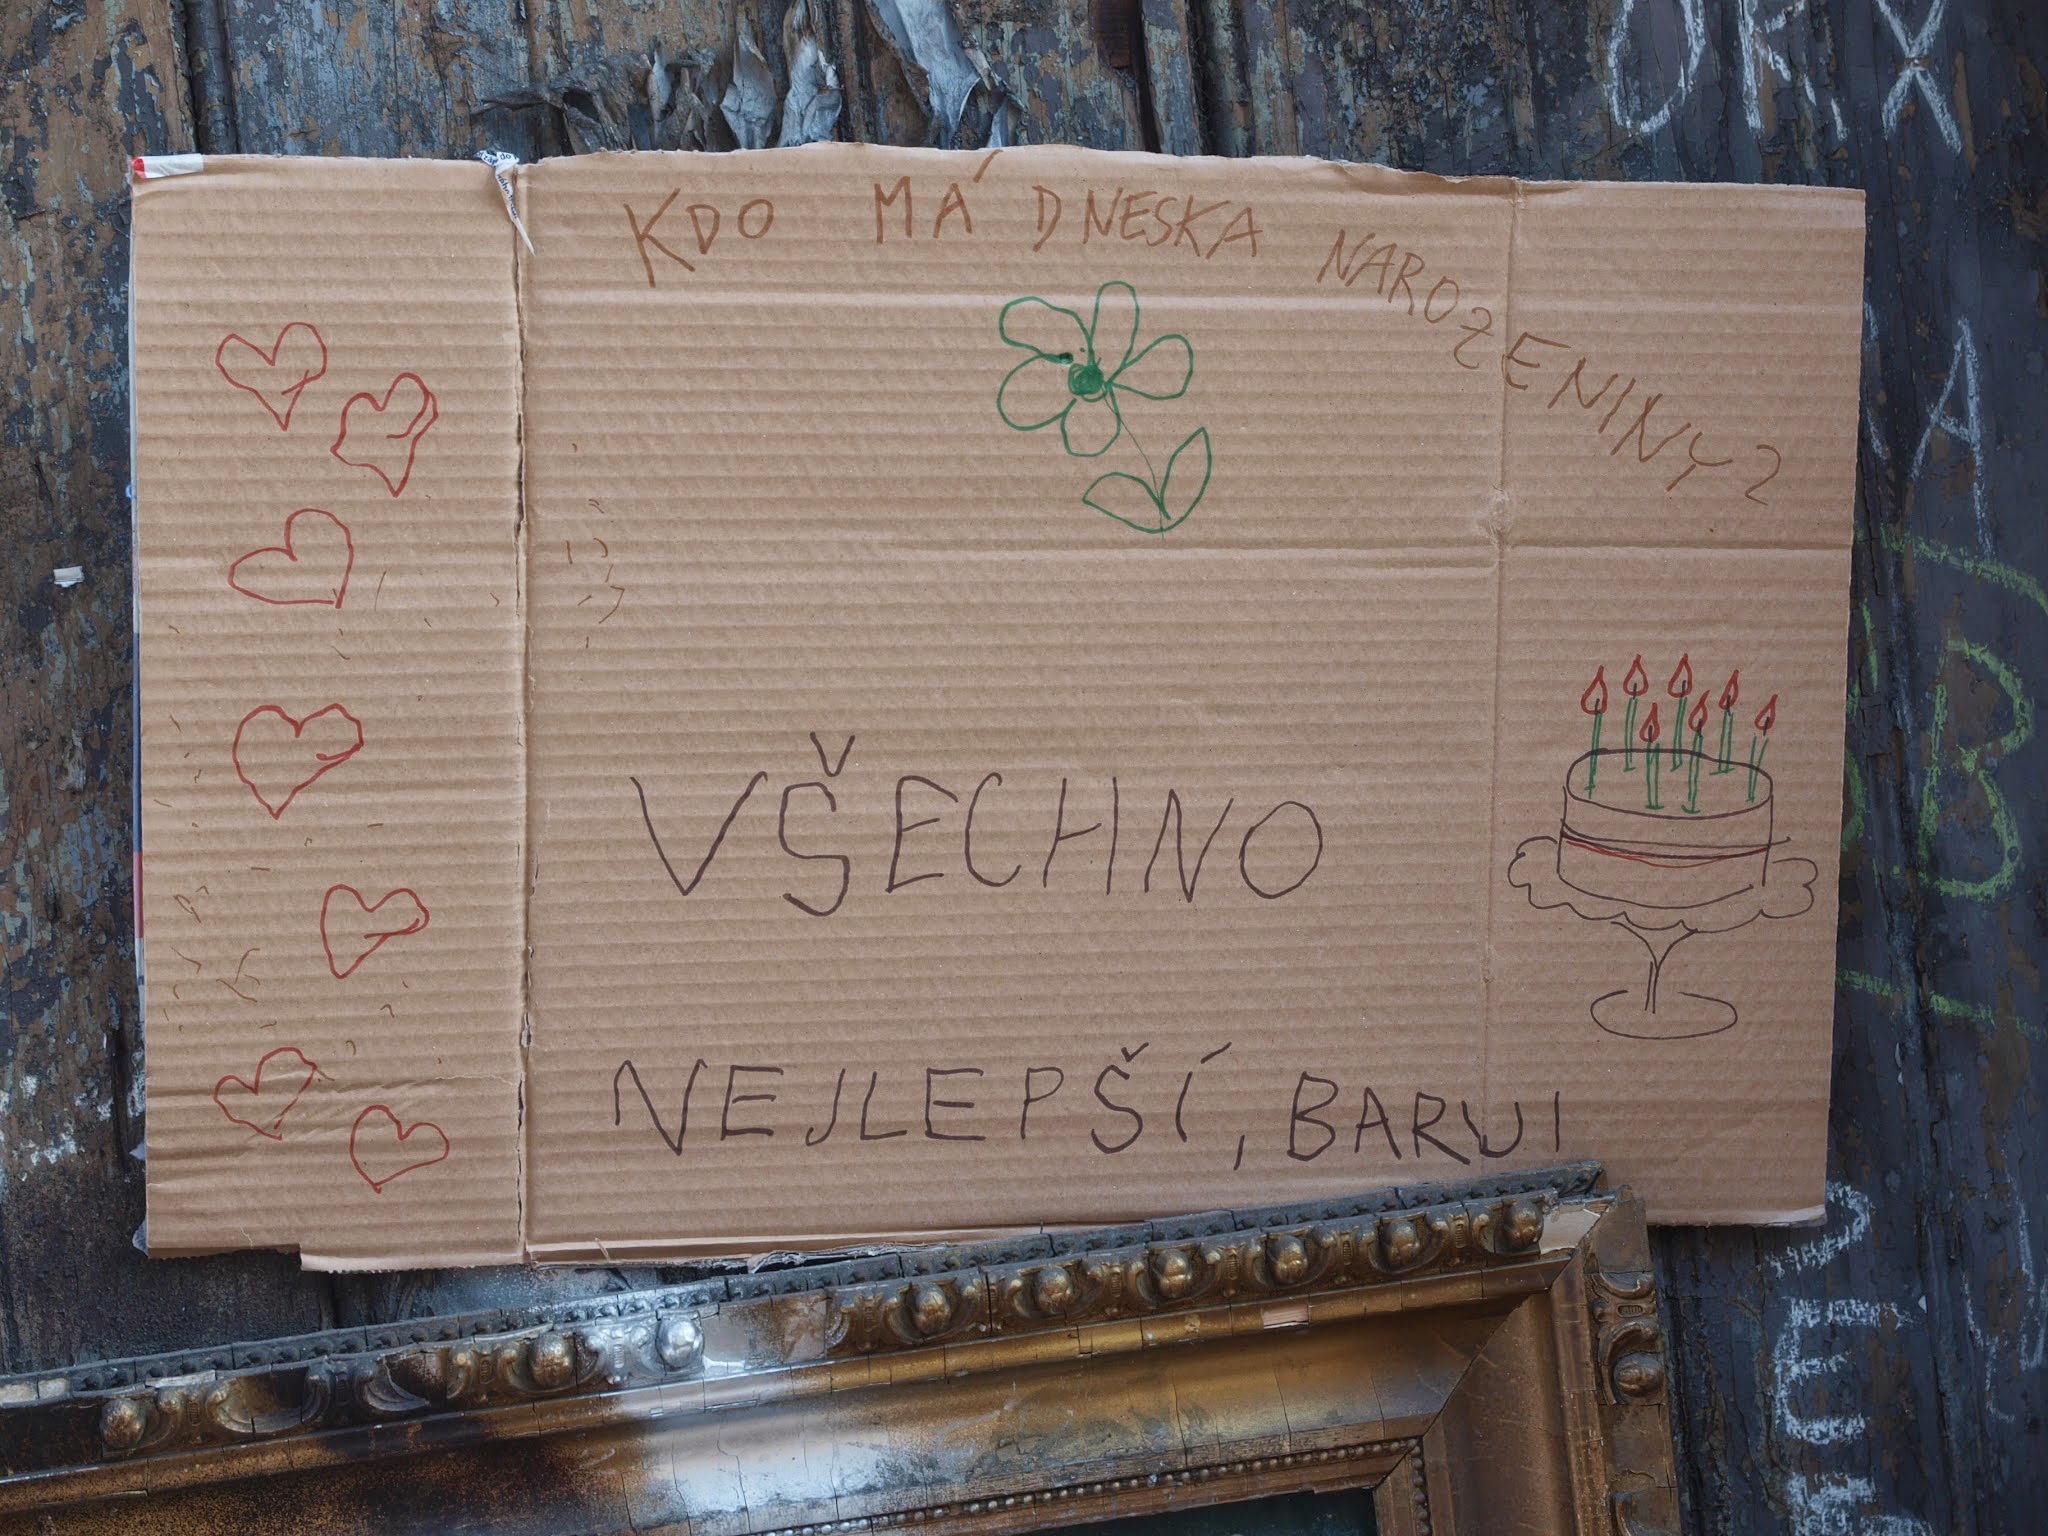 KDO MÁ DNESKA NAROZENINY?
VŠECHNO
NEJLEPŠÍ, BARUI